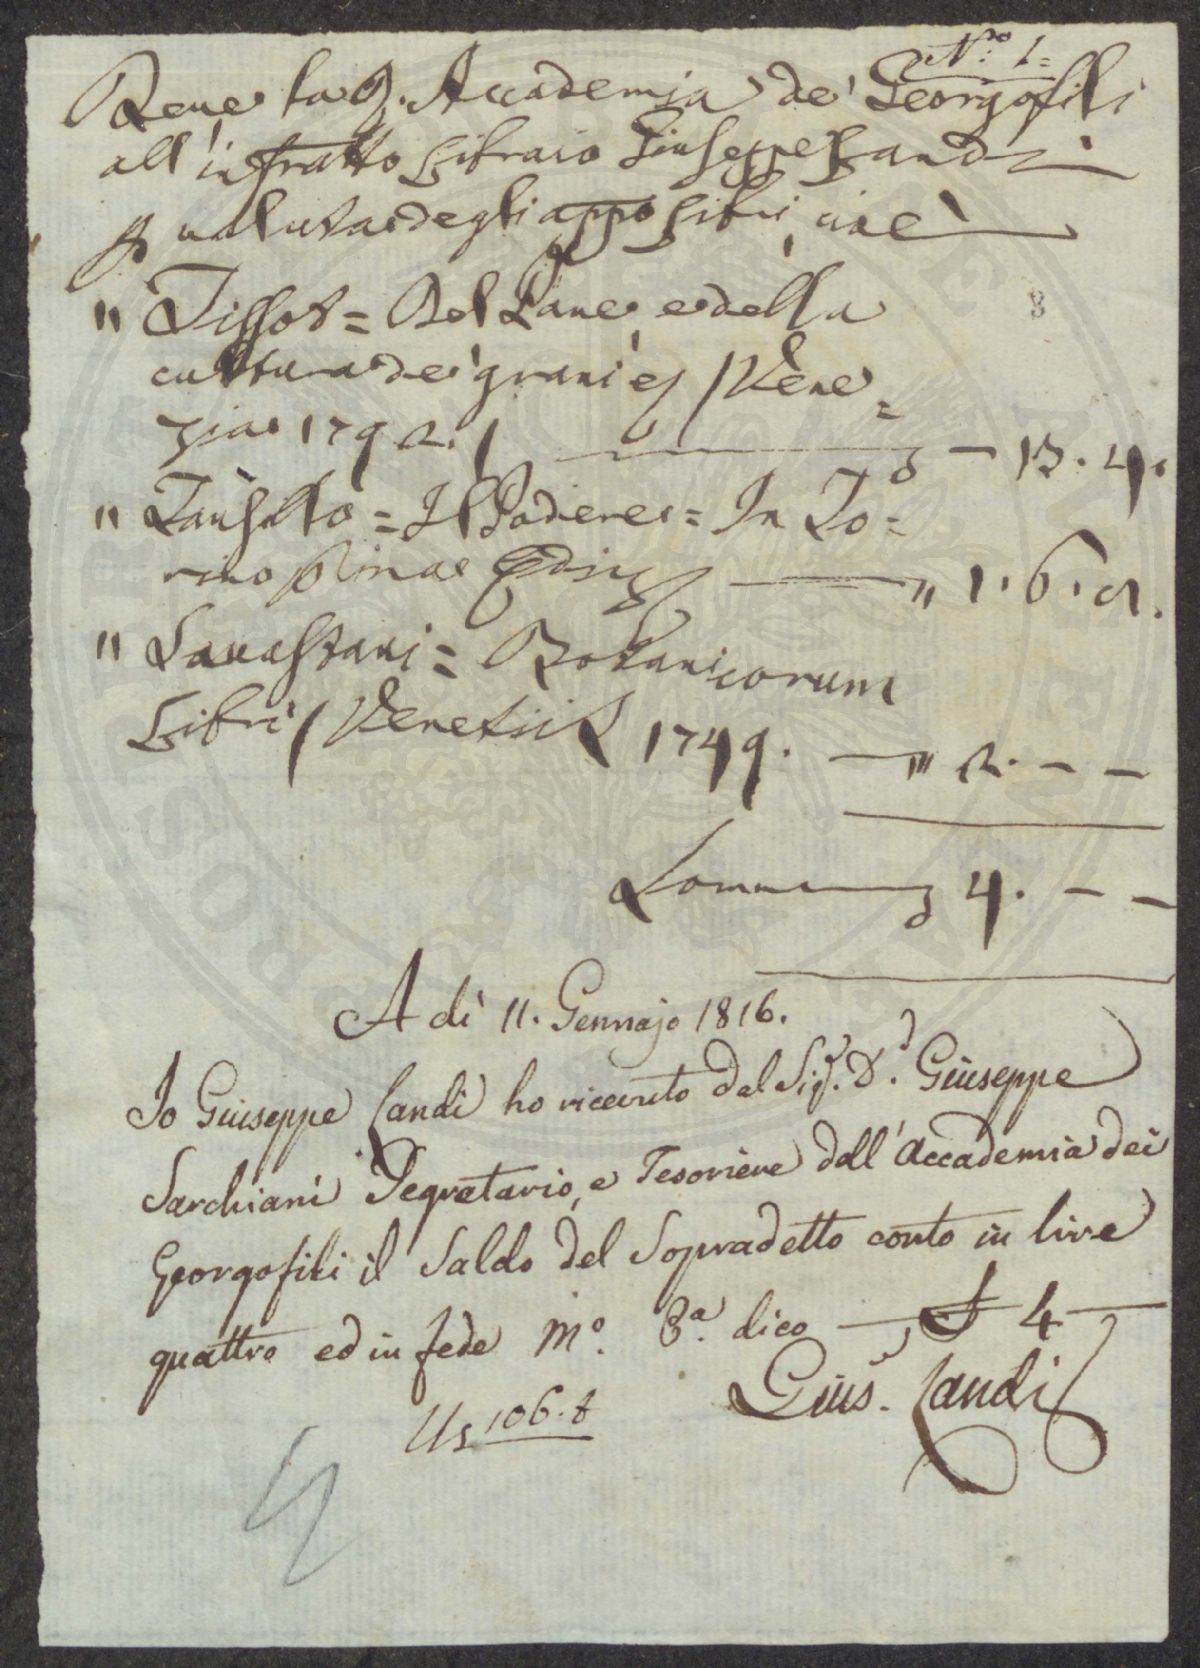 N.º 1=
Deve la R. Accademia de' Georgofili
all' infratto Libraio Giuseppe Landi
p valuta degli appo Libri, cioè
" Tissot = Del Pane, e della
cultura de' grani &c / Vene=
zia 1792. / — 13. 4.
" Tansillo = Il Podere = In To=
rino prima Ediz — " 1. 6. 8.
" Lavastani = Botanicorum
Libri / Venetiis 1749. — " 2. – –
Somma 4. – –
A dì 11. Gennajo 1816.
Io Giuseppe Landi ho ricevuto dal Sig.r D.r Giuseppe
Sarchiani Segretario, e Tesoriere dell' Accademia dei
Georgofili il Saldo del Sopradetto conto in lire
quattro ed in fede Mº. Pª. dico — £ 4 —
Gius. Landi
Us 106. t
8